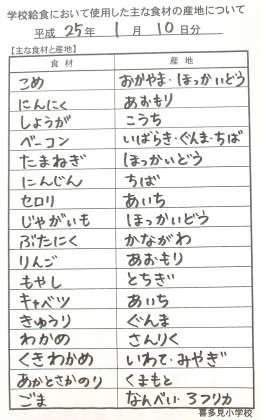 学校給食において使用した主な食材の産地について
平成 25年 1月 10日分
【主な食材と産地】
食材 産地
こめ おかやま・ほっかいどう
にんにく あおもり
しょうが こうち
ベーコン いばらき・ぐんま・ちば
たまねぎ ほっかいどう
にんじん ちば
セロリ あいち
じゃがいも ほっかいどう
ぶたにく かながわ
りんご あおもり
もやし とちぎ
キャベツ あいち
きゅうり ぐんま
わかめ さんりく
くきわかめ いわて・みやぎ
あかとさかのり くまもと
ごま なんべい・アフリカ
喜多見小学校